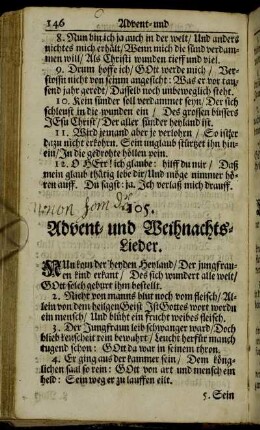 146 Advent- und
8. Nun bin ich ja auch in der welt/ Und anders
nichtes mich erhält/ Wenn mich die sünd verdam-
men will/ Als Christi wunden tieff und viel.
9. Drum hoffe ich/ GOtt werde mich/ Ver-
stossen nicht von seinem angesicht: Was er vor tau-
send jahr geredt/ Dasselb noch unbeweglich steht.
10. Kein sünder soll verdammet seyn/ Der sich
schleust in die wunden ein/ Des grossen büssers
JEsu Christ/ Der aller sünder heyland ist.
11. Wird jemand aber je verlohrn/ So ist er
dazu nicht erkohrn. Sein unglaub stürtzet ihn hin-
ein/ In die gedrohte höllen pein.
12. O HErr! ich glaube: hilff du mir/ Daß
mein glaub thätig lebe dir/ Und möge nimmer hö-
ren auff. Du sagst: ja. Ich verlaß mich drauff.
105.
Advent- und Weihnachts-
Lieder.
NUn kom der heyden Heyland/ Der jungfrau-
en kind erkant/ Des sich wundert alle welt/
GOtt solch geburt ihm bestellt.
2. Nicht von manns blut noch vom fleisch/ Al-
lein von dem heilgen Geist Ist Gottes wort worden
ein mensch/ Und blüht ein frucht weibes fleisch.
3. Der Jungfraun leib schwanger ward/ Doch
blieb keuscheit rein bewahrt/ Leucht herfür manch
tugend schon: GOtt da war in seinem thron.
4. Er ging aus der kammer sein/ Dem könig-
lichen saal so rein: GOtt von art und mensch ein
held: Sein weg er zu lauffen eilt.
5. Sein